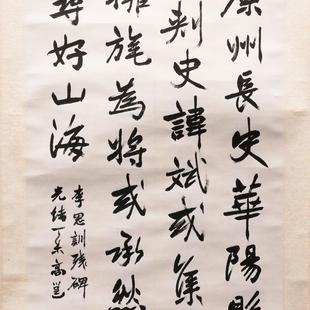 原州長史華陽縣
刺史諱斌或集
擁旄為將或承
尋好山海
李思訓殘碑
光緒丁未高邕